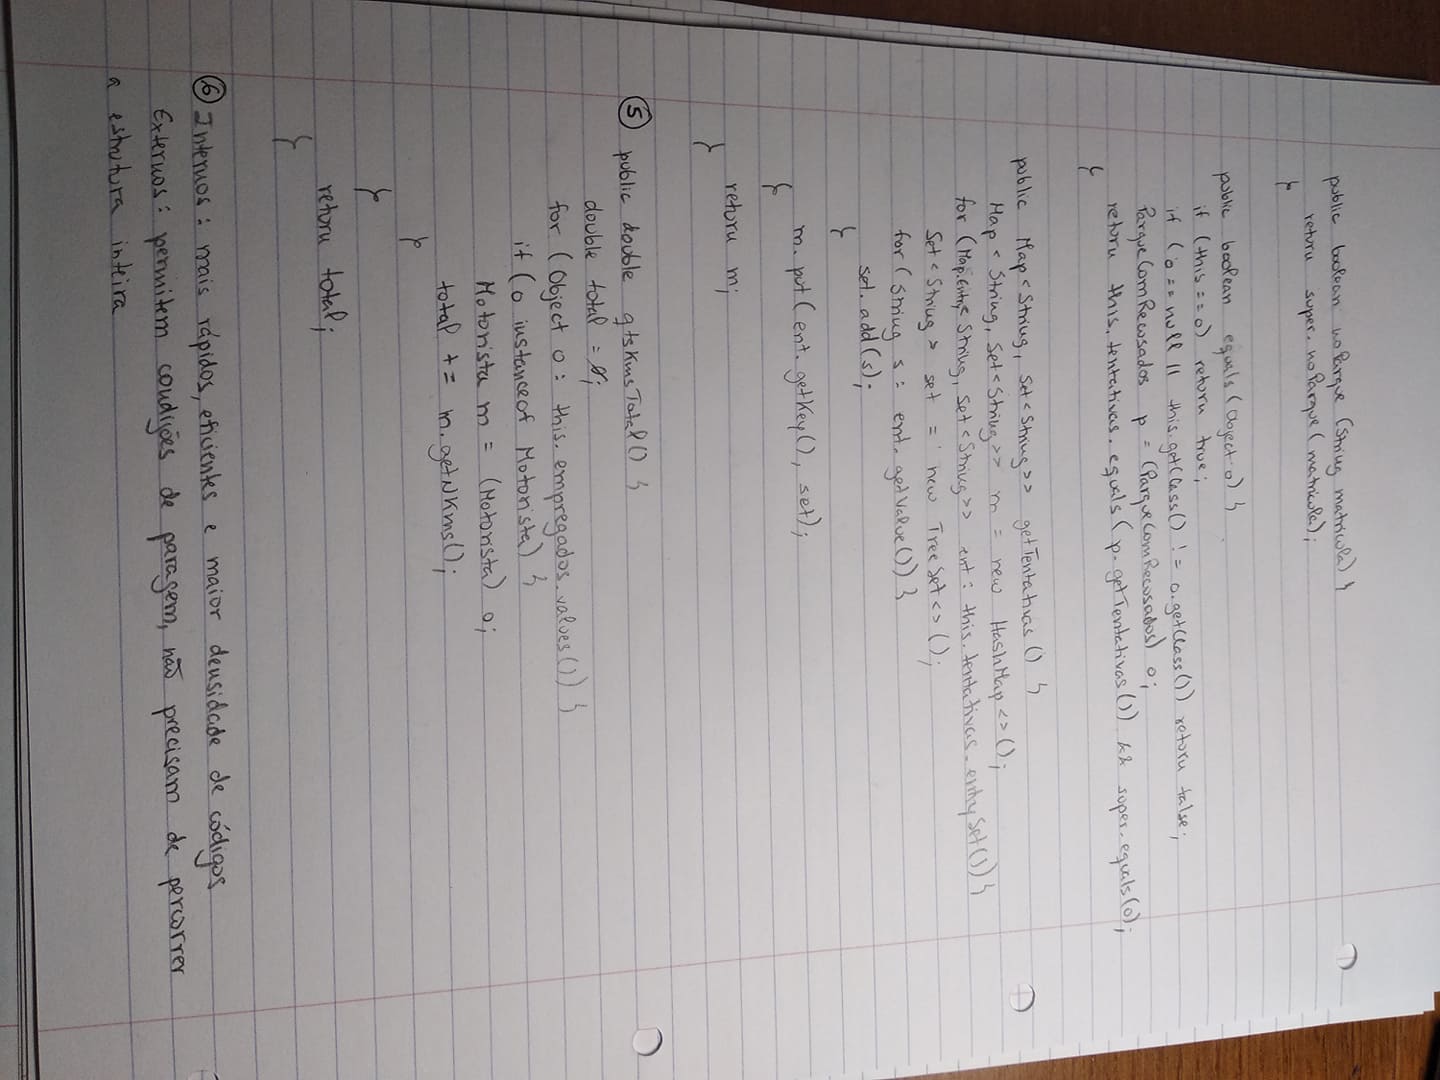 public boolean noParque (String matricula) {
return super.noParque (matricula);
}
public boolean equals (Object o) {
if (this == o) return true;
if (o == null || this.getClass() != o.getClass()) return false;
ParqueComRecusados p = (ParqueComRecusados) o;
return this.tentativas.equals (p.getTentativas()) && super.equals(o);
}
public Map<String, Set<String>> getTentativas () {
Map<String, Set<String>> m = new HashMap<>();
for (Map.Entry<String, Set<String>> ent : this.tentativas.entrySet()) {
Set<String> set = new TreeSet<>();
for (String s : ent.getValue()) {
set.add(s);
}
m.put (ent.getKey(), set);
}
return m;
}
5 public double qtsKmsTotal () {
double total = 0;
for (Object o : this.empregados.values()) {
if (o instanceof Motorista) {
Motorista m = (Motorista) o;
total += m.getNKms();
}
}
return total;
}
6 Internos: mais rápidos, eficientes e maior densidade de códigos
Externos: permitem condições de paragem, não precisam de percorrer
a estrutura inteira